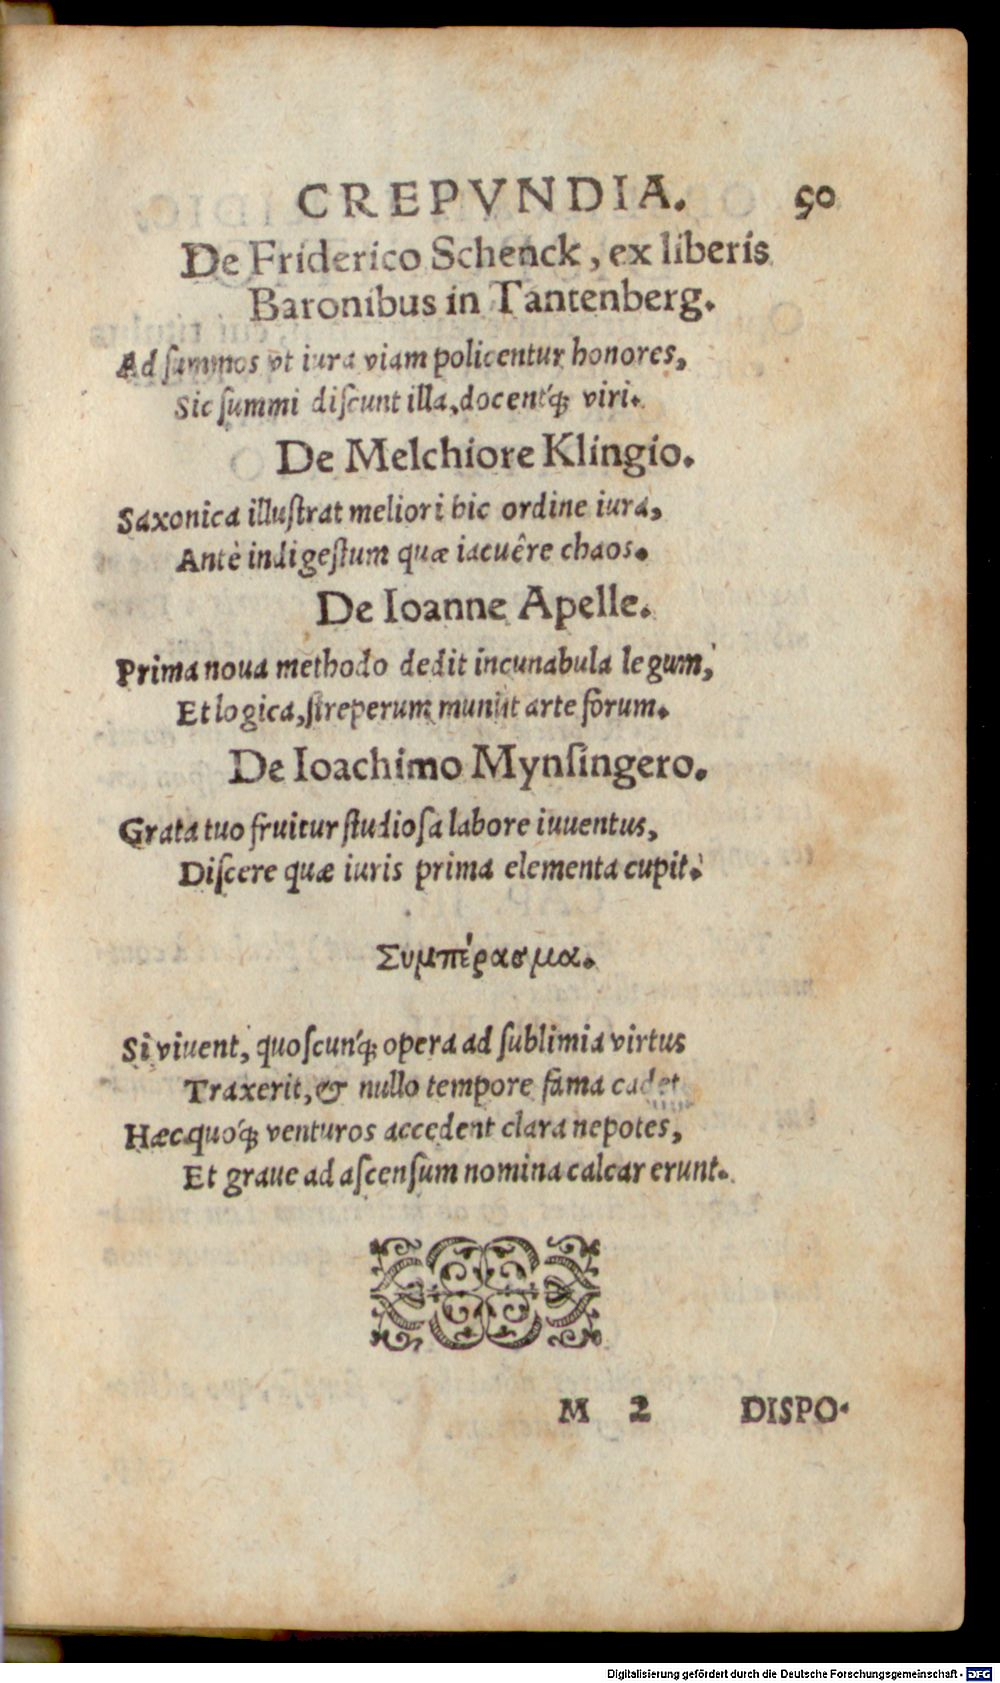 CREPVNDIA. 90
De Friderico Schenck, ex liberis
Baronibus in Tantenberg.
Ad summos vt iura viam policentur honores,
Sic summi discunt illa, docentq́; viri.
De Melchiore Klingio.
Saxonica illustrat meliori hic ordine iura,
Antè indigestum quæ iacuêre chaos.
De Ioanne Apelle.
Prima noua methodo dedit incunabula legum,
Et logica, streperum muniit arte forum.
De Ioachimo Mynsingero.
Grata tuo fruitur studiosa labore iuuentus,
Discere quæ iuris prima elementa cupit.
Συμπέρασμα.
Si viuent, quoscunq́; opera ad sublimia virtus
Traxerit, & nullo tempore fama cadet
Hæc quoq́; venturos accedent clara nepotes,
Et graue ad ascensum nomina calcar erunt.
M 2 DISPO-
Digitalisierung gefördert durch die Deutsche Forschungsgemeinschaft - DFG